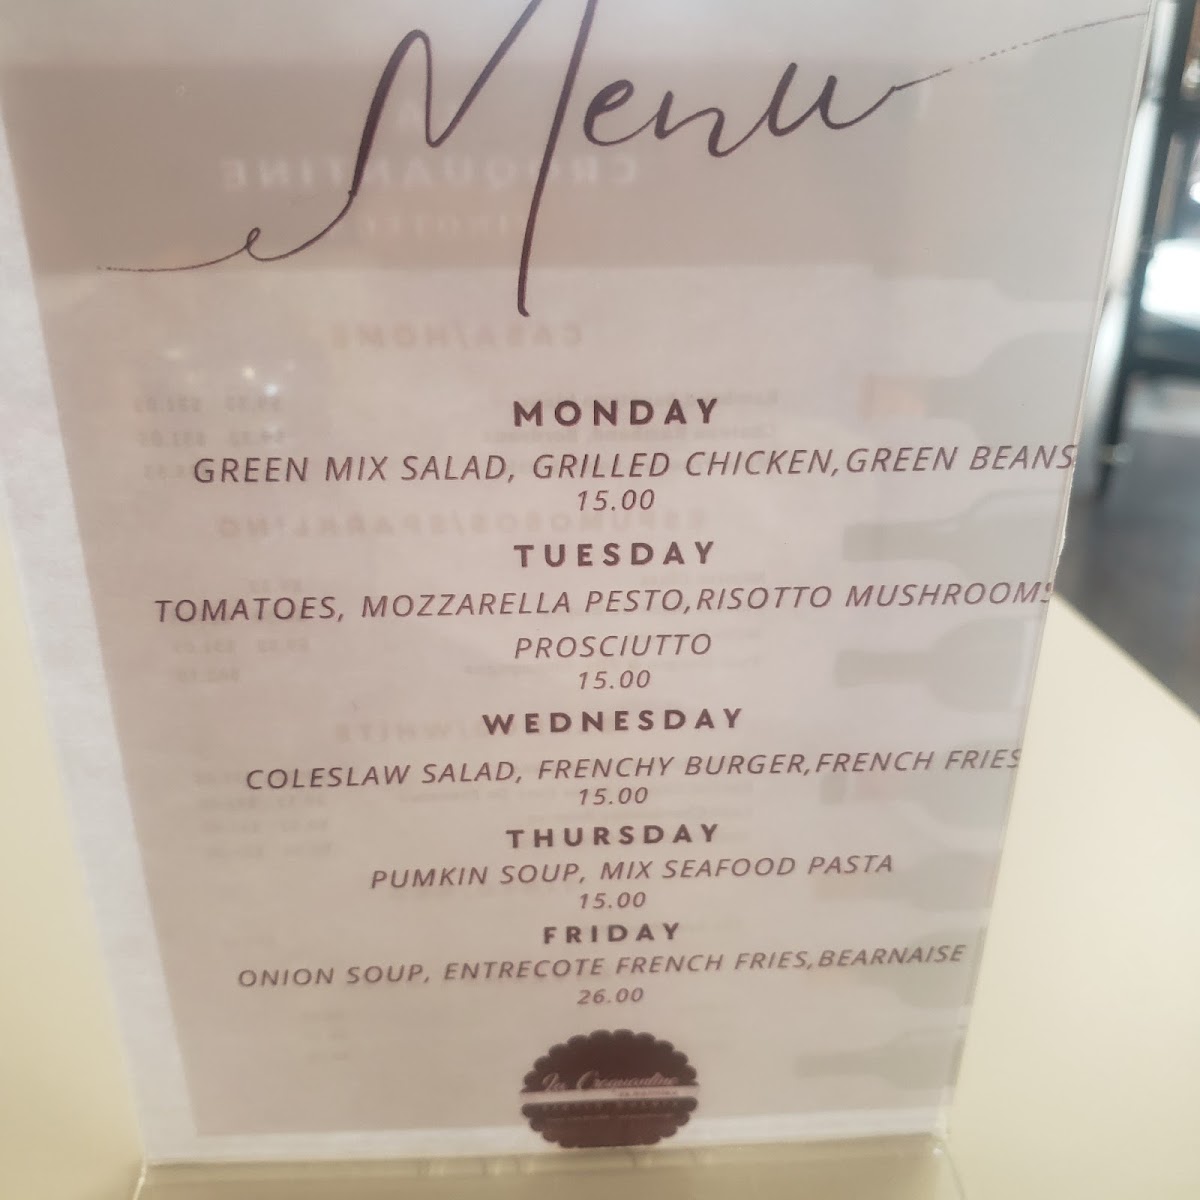 Menu
MONDAY
GREEN MIX SALAD, GRILLED CHICKEN,GREEN BEANS
15.00
TUESDAY
TOMATOES, MOZZARELLA PESTO,RISOTTO MUSHROOMS
PROSCIUTTO
15.00
WEDNESDAY
COLESLAW SALAD, FRENCHY BURGER,FRENCH FRIES
15.00
THURSDAY
PUMKIN SOUP, MIX SEAFOOD PASTA
15.00
FRIDAY
ONION SOUP, ENTRECOTE FRENCH FRIES,BEARNAISE
26.00
La Croquantine